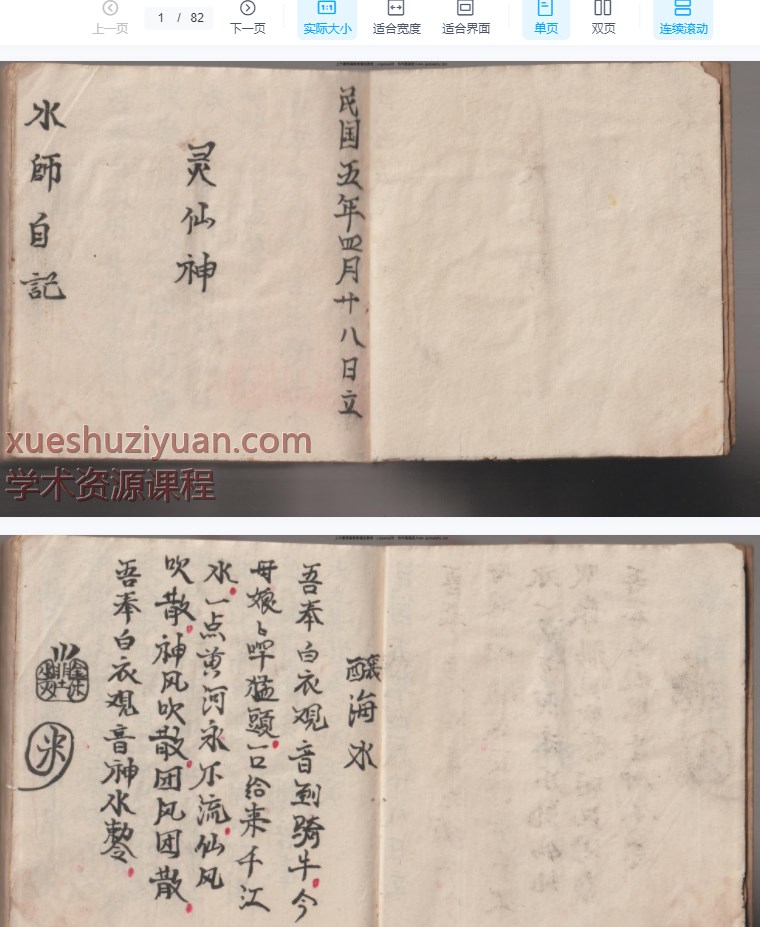 上一页
1 / 82
下一页
1:1
实际大小
适合宽度
适合界面
单页
双页
连续滚动
民国五年四月十八日立
灵仙神
水師自記
xueshuziyuan.com
学术资源课程
海水
吾奉白衣观音到騎牛今
母娘〻 猛頭一口给来千江
水一点黄河永不流仙风
吹散神风吹散团风团散
吾奉白衣观音神水勅令